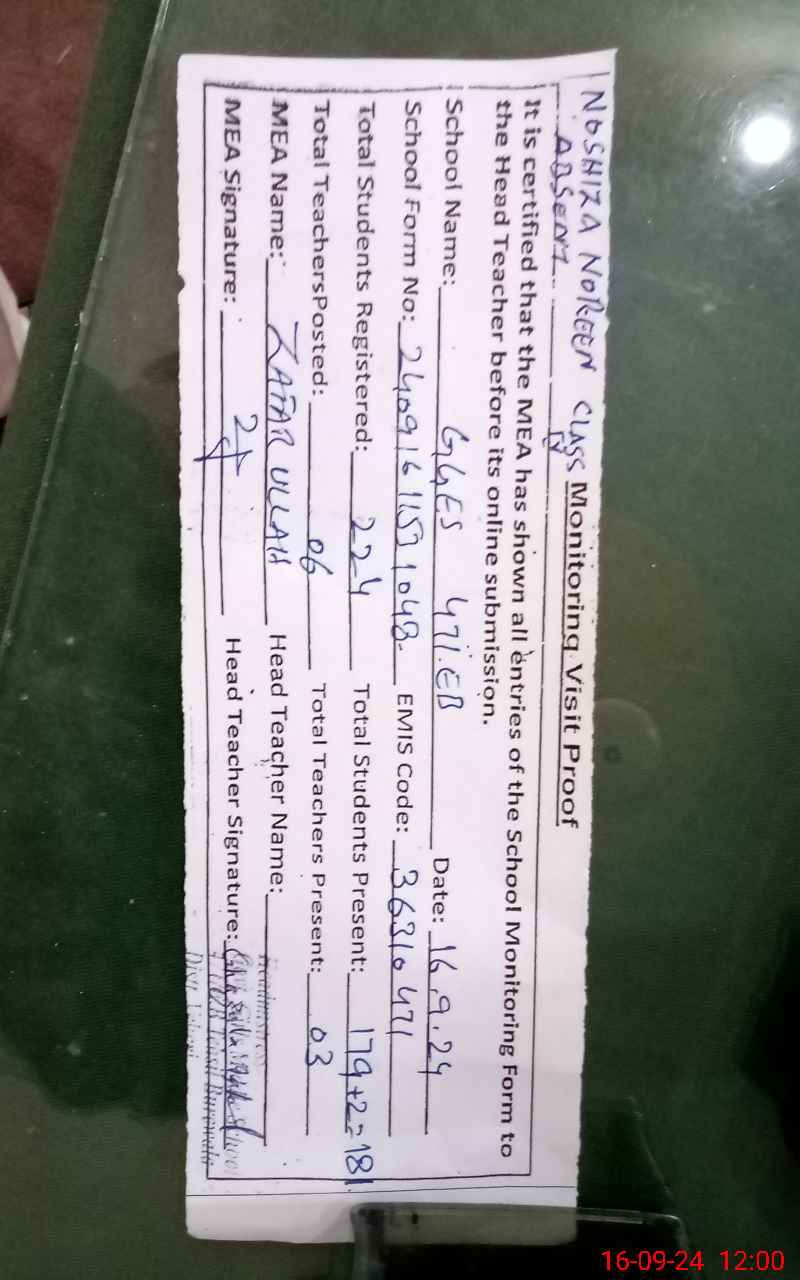 NOSHIZA NOREEN CLASS Monitoring Visit Proof
ABSENT IV
It is certified that the MEA has shown all entries of the School Monitoring Form to
the Head Teacher before its online submission.
School Name: GGES 471.EB Date: 16.9.24
School Form No: EMIS Code: 36310471
Total Students Registered: 224 Total Students Present: 179+2=181.
Total TeachersPosted: 06 Total Teachers Present: 03
MEA Name: ZAFAR ULLAH Head Teacher Name:
MEA Signature: Head Teacher Signature:
Headmistress
16-09-24 12:00